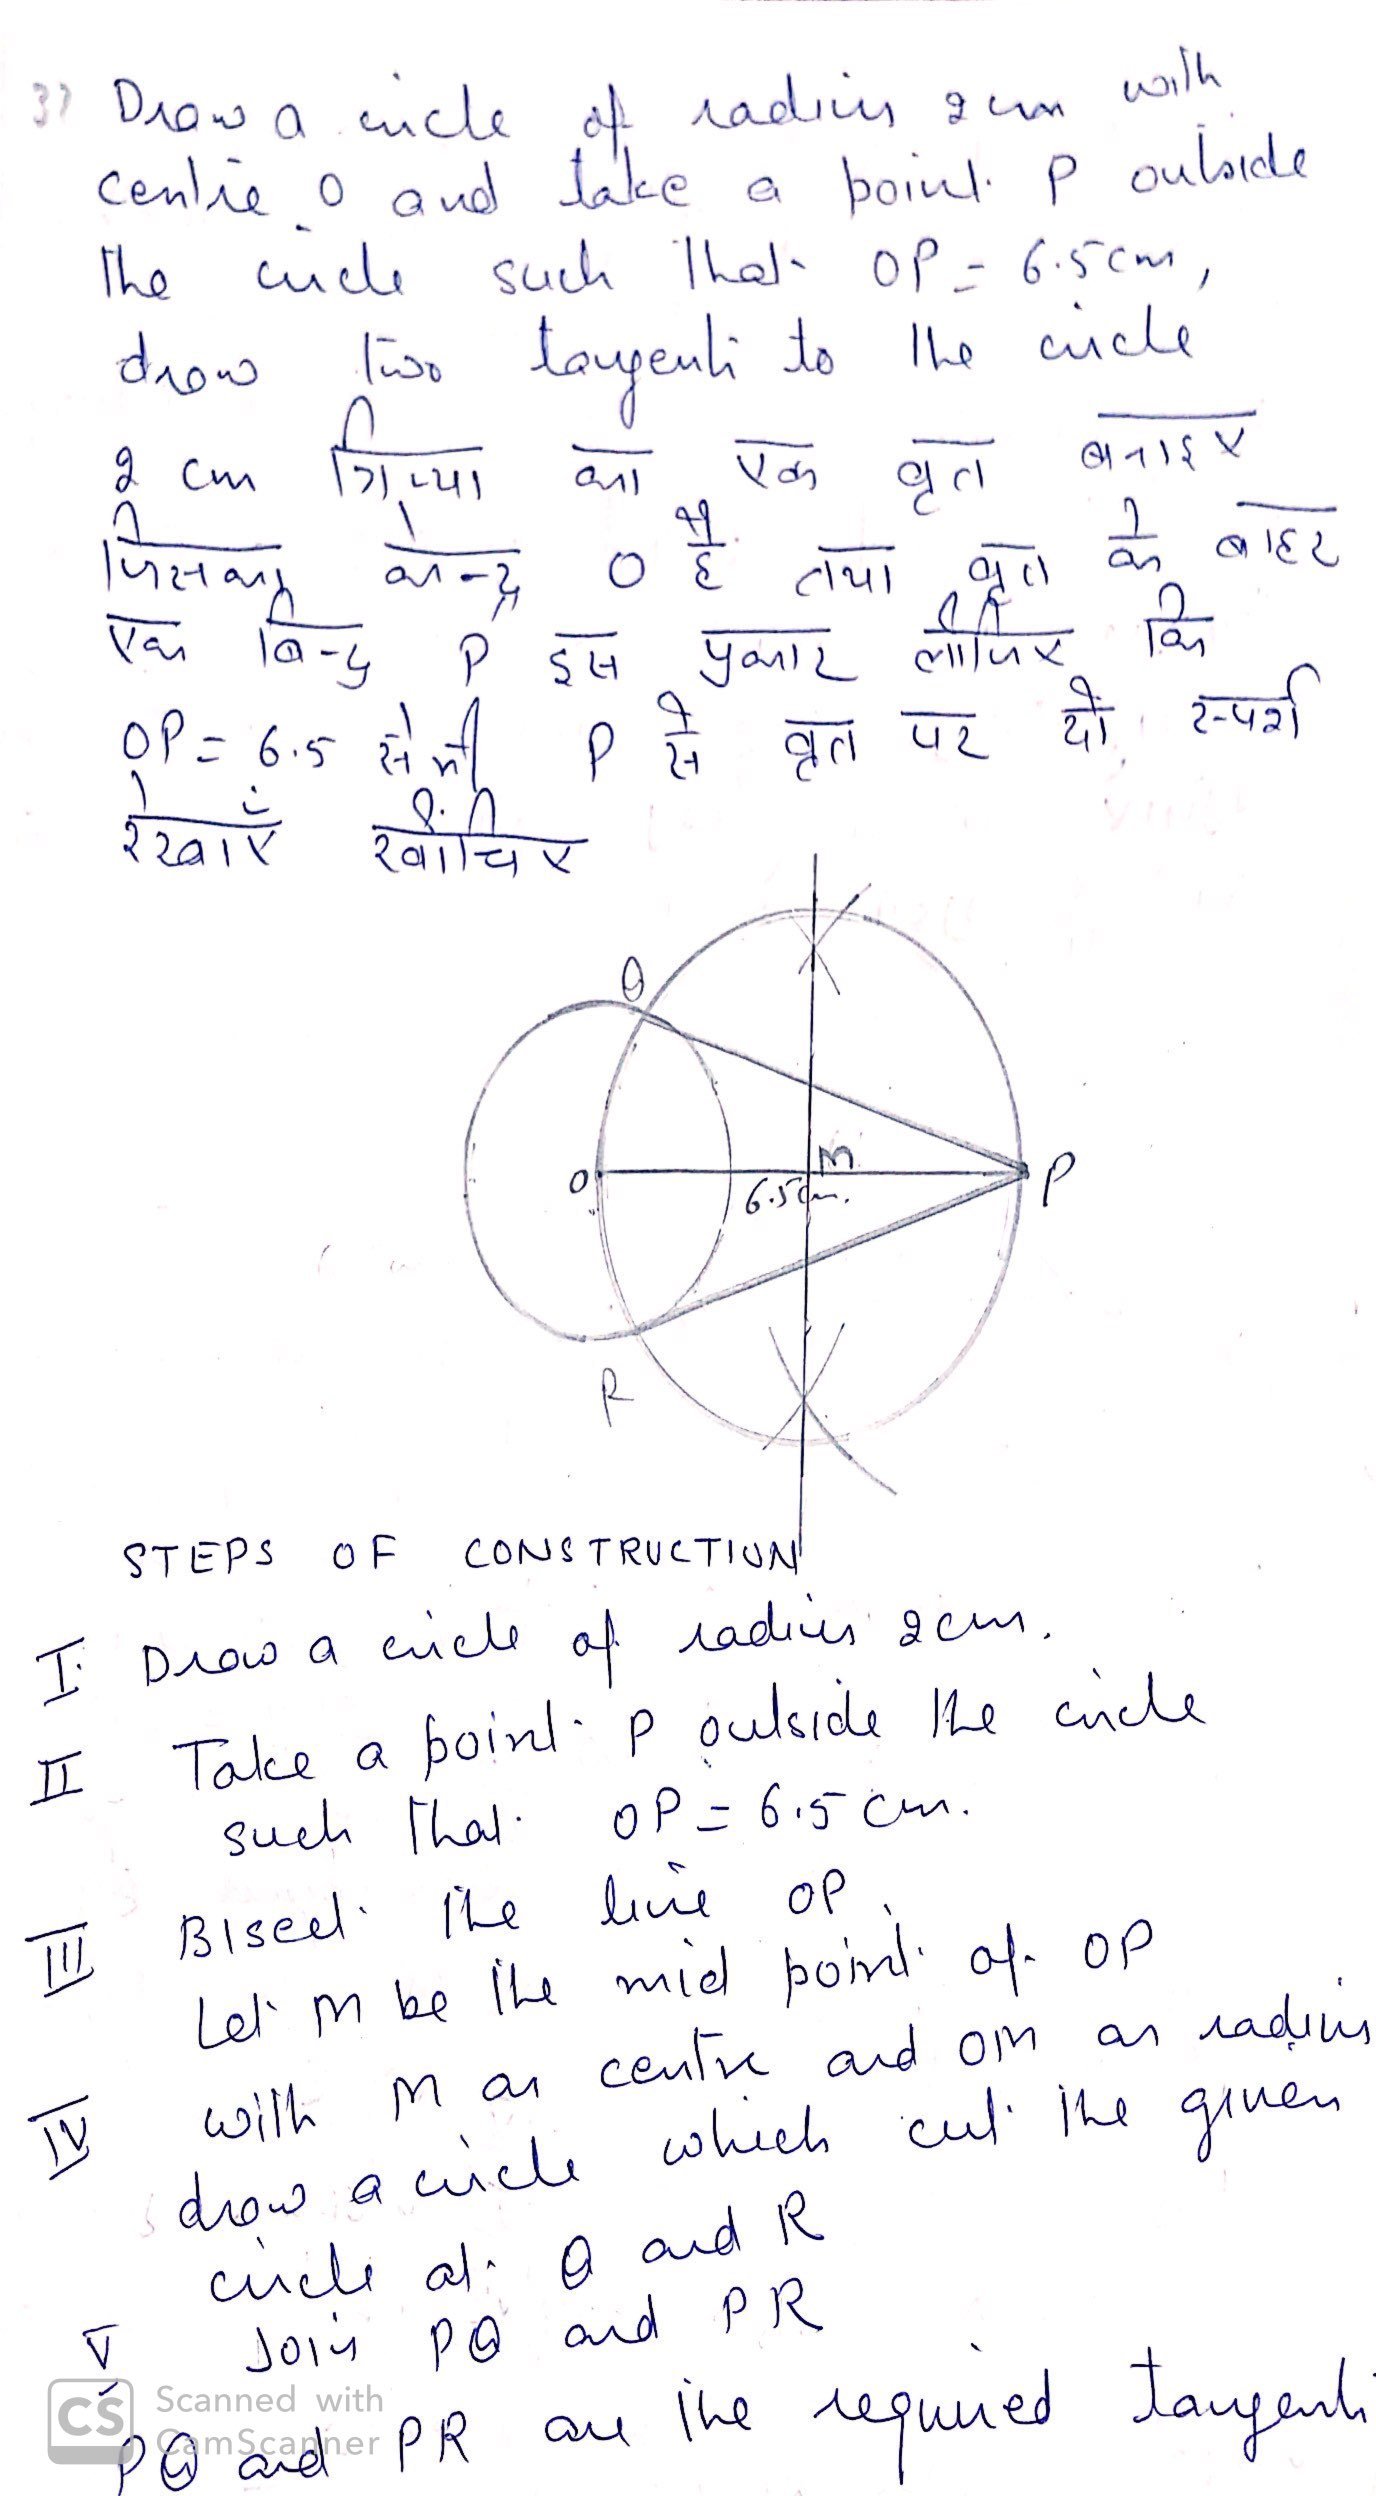 37 Draw a circle of radius 2 cm with
centre O and take a point P outside
the circle such that OP = 6.5 cm,
draw two tangents to the circle
2 cm त्रिज्या का एक वृत बनाइए
जिसका केन्द्र O है तथा वृत के बाहर
एक बिन्दु P इस प्रकार लीजिए कि
OP = 6.5 से मी P से वृत पर दो स्पर्श
रेखाएँ खींचिए
Q
O
M
6.5cm.
P
R
STEPS OF CONSTRUCTION
I. Draw a circle of radius 2cm.
II Take a point P outside the circle
such that OP = 6.5 cm.
III Bisect the line OP.
Let M be the mid point of OP
IV with M as centre and OM as radius
draw a circle which cut the given
circle at Q and R
V Join PQ and PR
PQ and PR are the required tangents
CS Scanned with
CamScanner